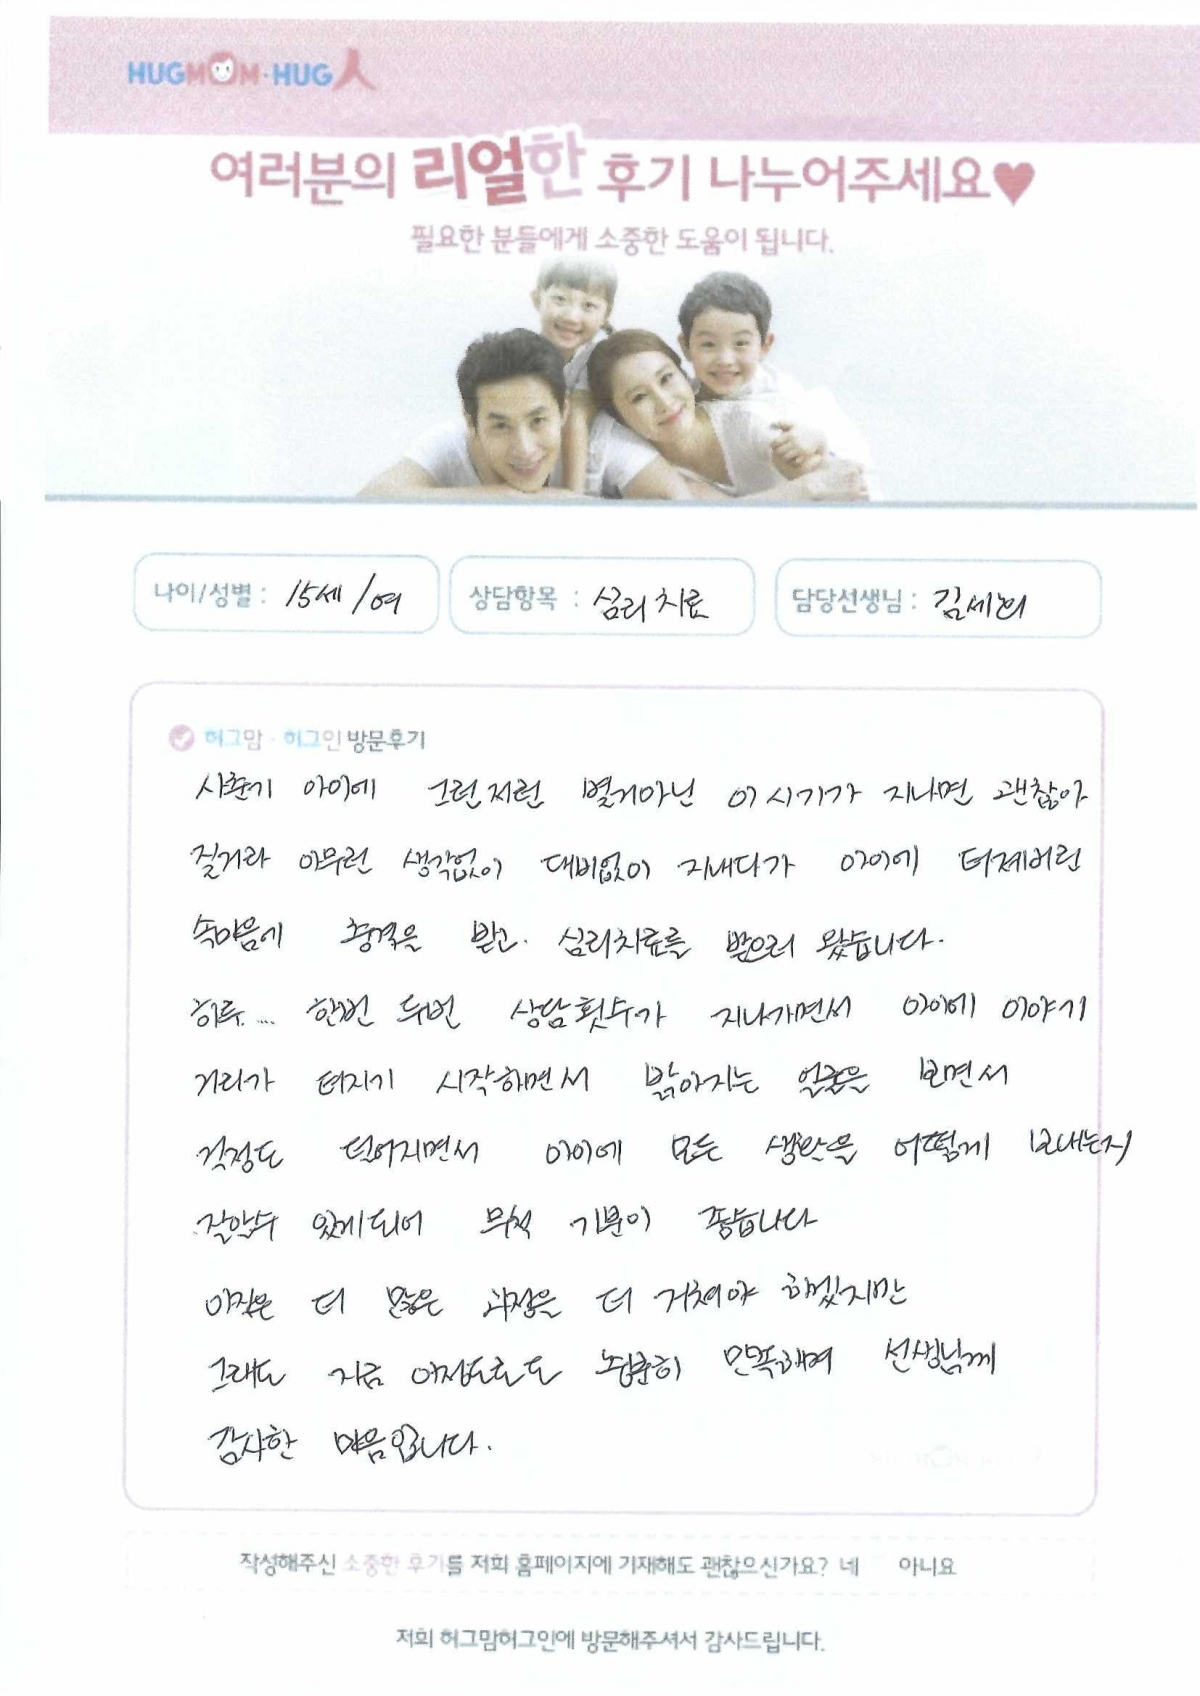 HUGMOM·HUG人
여러분의 리얼한 후기 나누어주세요♥
필요한 분들에게 소중한 도움이 됩니다.
나이/성별 : 15세/여
상담항목 : 심리치료
담당선생님 : 김세희
허그맘·허그인 방문후기
사춘기 아이에 그런저런 별거아닌 이 시기가 지나면 괜찮아
질거라 아무런 생각없이 대비없이 지내다가 아이에 터제버린
속마음에 충격을 받고. 심리치료를 받으러 왔습니다.
하루... 한번 두번 상담횟수가 지나가면서 아이에 이야기
거리가 터지기 시작하면서 밝아지는 얼굴을 보면서
걱정도 덜어지면서 아이에 모든 생활을 어떻게 보내는지
잘알수 있게되어 무척 기분이 좋습니다
아직은 더 많은 과정을 더 거쳐야 하겠지만
그래도 지금 이정도로도 충분히 만족하며 선생님께
감사한 마음입니다.
작성해주신 소중한 후기를 저희 홈페이지에 기재해도 괜찮으신가요? 네 아니요
저희 허그맘허그인에 방문해주셔서 감사드립니다.